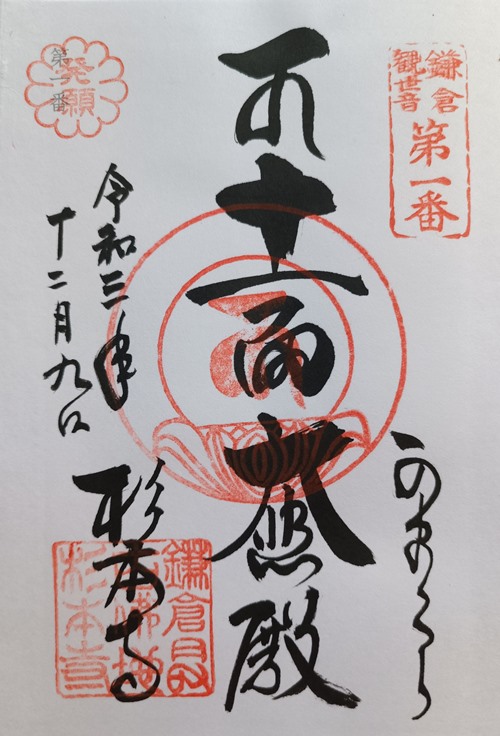 鎌倉
観世音
第一番
かまくら
十一面大悲殿
発願
第一番
令和三年
十二月九日
杉本寺
鎌倉最
古佛地
杉本寺